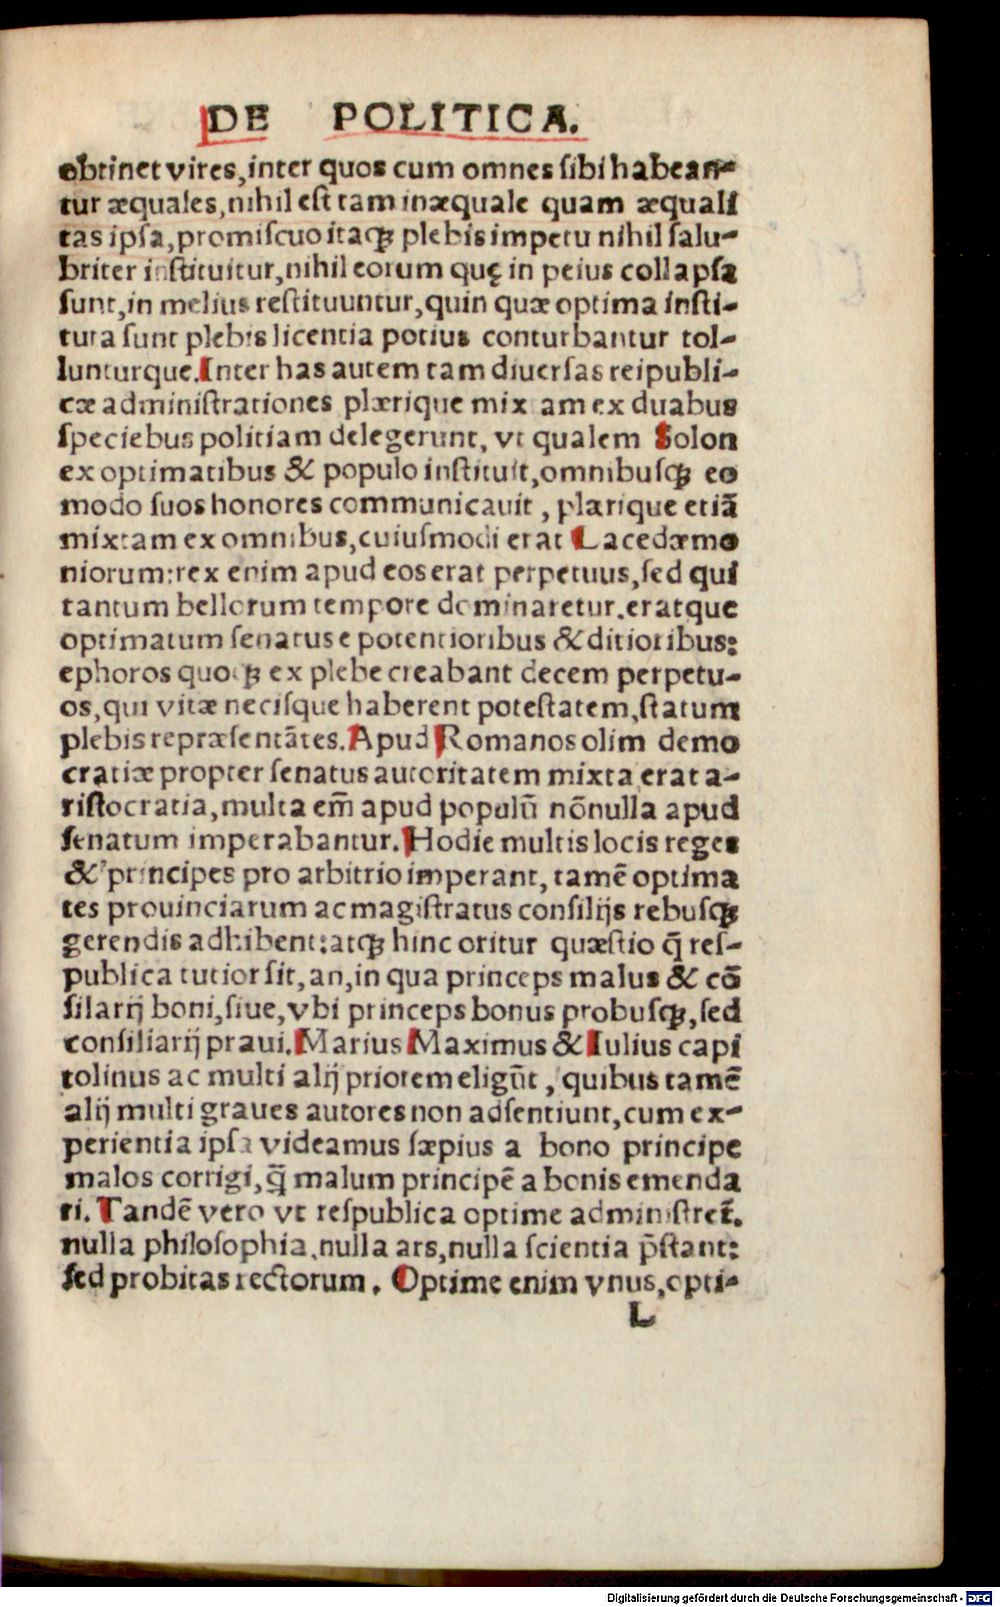 DE POLITICA.
obtinet vires, inter quos cum omnes sibi habean-
tur æquales, nihil est tam inæquale quam æquali
tas ipsa, promiscuo itaqꝫ plebis impetu nihil salu-
briter instituitur, nihil eorum quę in peius collapsa
sunt, in melius restituuntur, quin quæ optima insti-
tuta sunt plebis licentia potius conturbantur tol-
lunturque. Inter has autem tam diuersas reipubli-
cæ administrationes plærique mixtam ex duabus
speciebus politiam delegerunt, vt qualem Solon
ex optimatibus & populo instituit, omnibusqꝫ eo
modo suos honores communicauit, plærique etiã
mixtam ex omnibus, cuiusmodi erat Lacedæmo
niorum: rex enim apud eos erat perpetuus, sed qui
tantum bellorum tempore dominaretur. eratque
optimatum senatus e potentioribus & ditioribus:
ephoros quoqꝫ ex plebe creabant decem perpetu-
os, qui vitæ necisque haberent potestatem, statum
plebis repræsentãtes. Apud Romanos olim demo
cratiæ propter senatus autoritatem mixta erat a-
ristocratia, multa em̃ apud populũ nõnulla apud
senatum imperabantur. Hodie multis locis reges
& principes pro arbitrio imperant, tamẽ optima
tes prouinciarum ac magistratus consilijs rebusqꝫ
gerendis adhibent: atqꝫ hinc oritur quæstio q̃ res-
publica tutior sit, an, in qua princeps malus & cõ
silarij boni, siue, vbi princeps bonus probusqꝫ, sed
consiliarij praui. Marius Maximus & Iulius capi
tolinus ac multi alij priorem eligũt, quibus tamẽ
alij multi graues autores non adsentiunt, cum ex-
perientia ipsa videamus sæpius a bono principe
malos corrigi, q̃ malum principẽ a bonis emenda
ri. Tandẽ vero vt respublica optime administret̃.
nulla philosophia, nulla ars, nulla scientia p̃stant:
sed probitas rectorum. Optime enim vnus, opti-
L
Digitalisierung gefördert durch die Deutsche Forschungsgemeinschaft - DFG